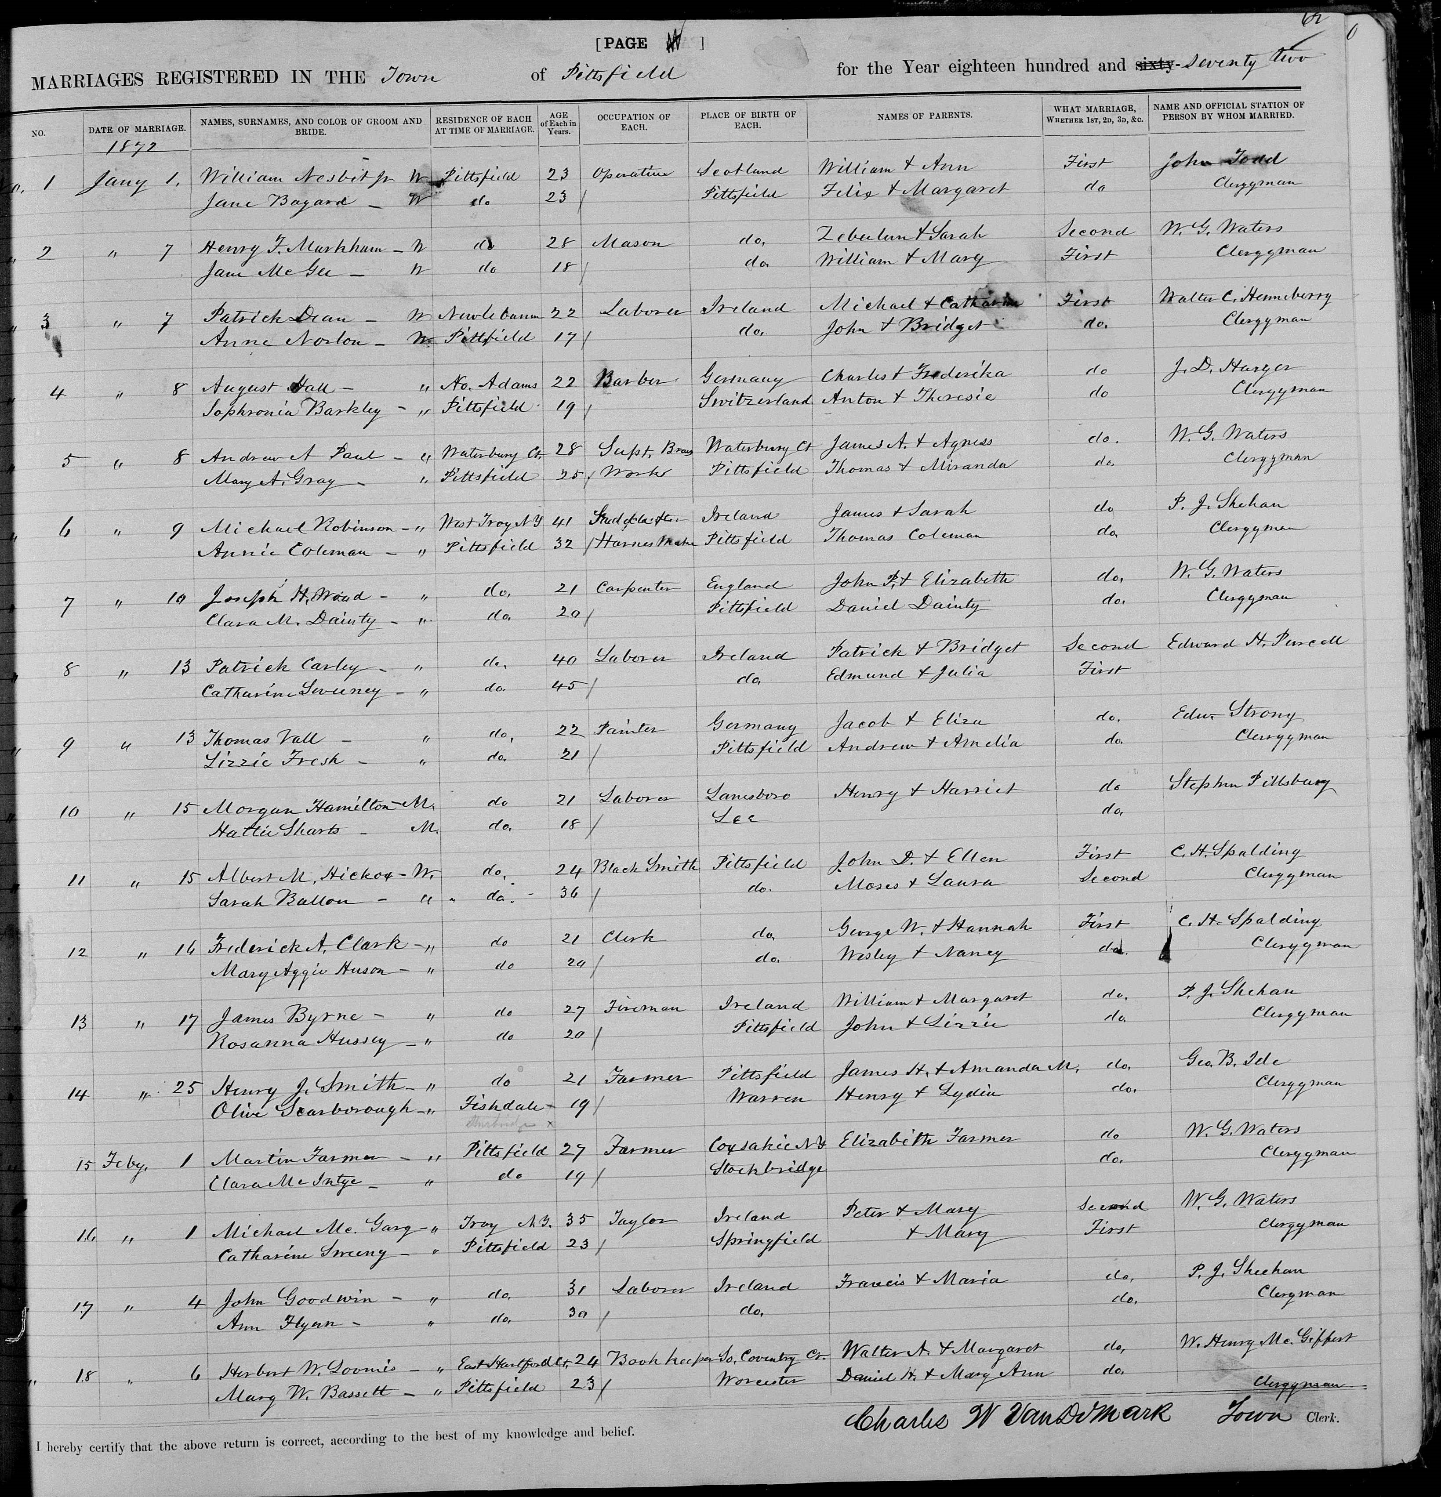 [PAGE ]
62
MARRIAGES REGISTERED IN THE Town of Pittsfield for the Year eighteen hundred and sixty-seventy two
NO. DATE OF MARRIAGE. NAMES, SURNAMES, AND COLOR OF GROOM AND BRIDE. RESIDENCE OF EACH AT TIME OF MARRIAGE. AGE of Each in Years. OCCUPATION OF EACH. PLACE OF BIRTH OF EACH. NAMES OF PARENTS. WHAT MARRIAGE, WHETHER 1ST, 2D, 3D, &c. NAME AND OFFICIAL STATION OF PERSON BY WHOM MARRIED.
1872
1 Jany 1. William Nesbit Jr W Pittsfield 23 Operative Scotland William + Ann First John Todd
Jane Bagard - W do 23 / Pittsfield Felix + Margaret do Clergyman
2 " 7 Henry F. Markham - W do 28 Mason do. Zebulun + Sarah Second W. G. Waters
Jane McGee - W do 18 / do. William + Mary First Clergyman
3 " 7 Patrick Dean - W New Lebanon 22 Laborer Ireland Michael + Catharine First Walter C. Henneberry
Anne Norton - W Pittsfield 17 / do. John + Bridget do. Clergyman
4 " 8 August Hall - " No. Adams 22 Barber Germany Charles + Frederika do J. D. Harger
Sophronia Barkley - " Pittsfield 19 / Switzerland Anton + Theresie do Clergyman
5 " 8 Andrew A Paul - " Waterbury Ct. 28 Supt. Brass Waterbury Ct James A. + Agness do. W. G. Waters
Mary A. Gray - " Pittsfield 25 / Works Pittsfield Thomas + Miranda do. Clergyman
6 " 9 Michael Robinson - " West Troy N.Y. 41 Ireland James + Sarah do P. J. Shehan
Annie Coleman - " Pittsfield 32 / Harness Maker Pittsfield Thomas Coleman do. Clergyman
7 " 10 Joseph H. Wood - " do. 21 Carpenter England John P. + Elizabeth do. W. G. Waters
Clara M. Dainty - " do. 20 / Pittsfield Daniel Dainty do. Clergyman
8 " 13 Patrick Carley - " do. 40 Laborer Ireland Patrick + Bridget Second Edward H. Purcell
Catharine Sweeney - " do. 45 / do. Edmund + Julia First
9 " 13 Thomas Vall - " do. 22 Painter Germany Jacob + Eliza do. Edw. Strong
Lizzie Fresh - " do. 21 / Pittsfield Andrew + Amelia do. Clergyman
10 " 15 Morgan Hamilton - M. do 21 Laborer Lanesboro Henry + Harriet do Stephen Pillsbury
Hattie Sharts - M. do. 18 / Lee do.
11 " 15 Albert M. Hickox - W. do. 24 Black Smith Pittsfield John D. + Ellen First C. H. Spalding
Sarah Ballou - " do. - 36 / do. Moses + Laura Second Clergyman
12 " 16 Frederick A. Clark - " do 21 Clerk do. George W. + Hannah First C. H. Spalding
Mary Aggie Huson - " do 20 / do. Wesley + Nancy do. Clergyman
13 " 17 James Byrne - " do 27 Fireman Ireland William + Margaret do. P. J. Shehan
Rosanna Hussey - " do 20 / Pittsfield John + Lizzie do. Clergyman
14 " 25 Henry J. Smith - " do 21 Farmer Pittsfield James H. + Amanda M. do. Geo. B. Ide
Olive Scarborough - " Fishdale - 19 / Warren Henry + Lydia do. Clergyman
15 Feby. 1 Martin Farmer - " Pittsfield 27 Farmer Coxsakie N.Y Elizabeth Farmer do W. G. Waters
Clara Mc Intye - " do 19 / Stockbridge do. Clergyman
16 " 1 Michael Mc. Garg - " Troy N.Y. 35 Taylor Ireland Peter + Mary Second W. G. Waters
Catharine Sweeny - " Pittsfield 23 / Springfield + Mary First Clergyman
17 " 4 John Goodwin - " do. 31 Laborer Ireland Francis + Maria do. P. J. Sheehan
Ann Flynn - " do. 30 / do. do. Clergyman
18 " 6 Herbert W. Loomis - " East Hartford Ct. 24 Book keeper So. Coventry Ct. Walter A. + Margaret do. W. Henry Mc. Giffert
Mary W. Bassett - " Pittsfield 23 / Worcester Daniel H. + Mary Ann do. Clergyman
Charles W VanDeMark Town Clerk.
I hereby certify that the above return is correct, according to the best of my knowledge and belief.